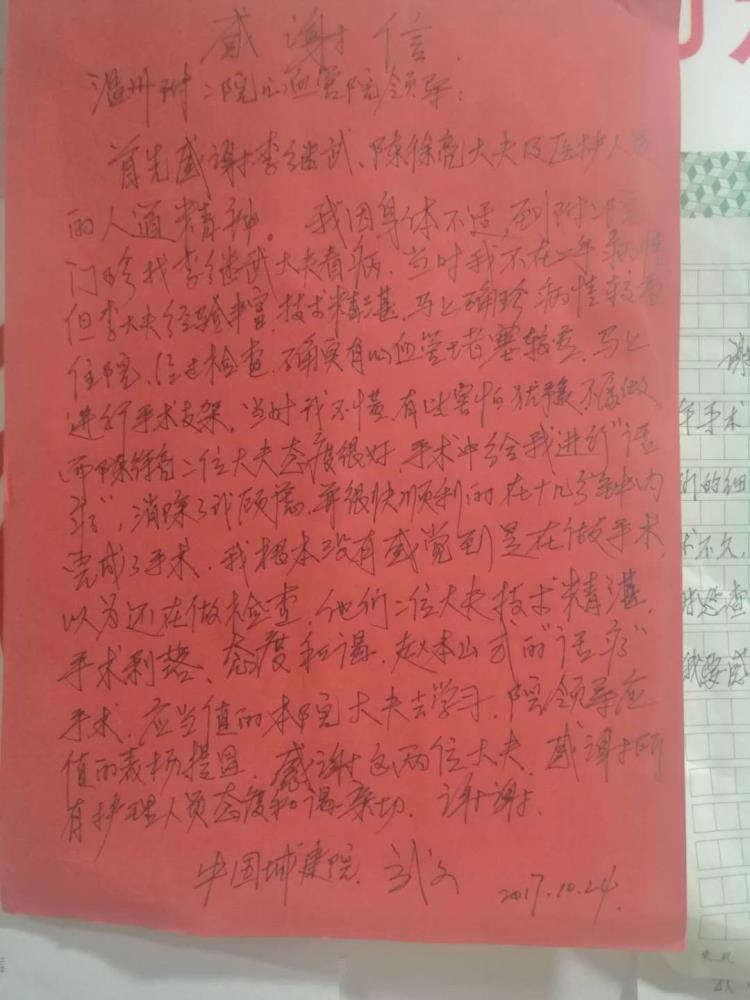 感谢信
温州附二院心血管院领导：
首先感谢李继武、陈徐亮大夫及医护人员
的人道精神。我因身体不适，到附二院
门诊找李继武大夫看病，当时我不在
但李大夫经验丰富，技术精湛，马上确诊病情较重
住院，经过检查，确实有心血管堵塞较重，马上
进行手术支架，当时我不懂，有些害怕犹豫，不愿做
而陈徐亮二位大夫态度很好，手术中给我进行"话
疗"，消除了我顾虑，并很快顺利的在十几分钟内
完成了手术，我根本没有感觉到是在做手术，
以为还在做检查，他们二位大夫技术精湛，
手术利落、态度和谒，赵本山式的"话疗"
手术，应当值的本院大夫去学习，院领导应
值的表杨提显，感谢这两位大夫，感谢所
有护理人员态度和谒亲切，谢谢。
中国城建院
2017.10.24.
谢
年手术
们的细
术不久，
我要感